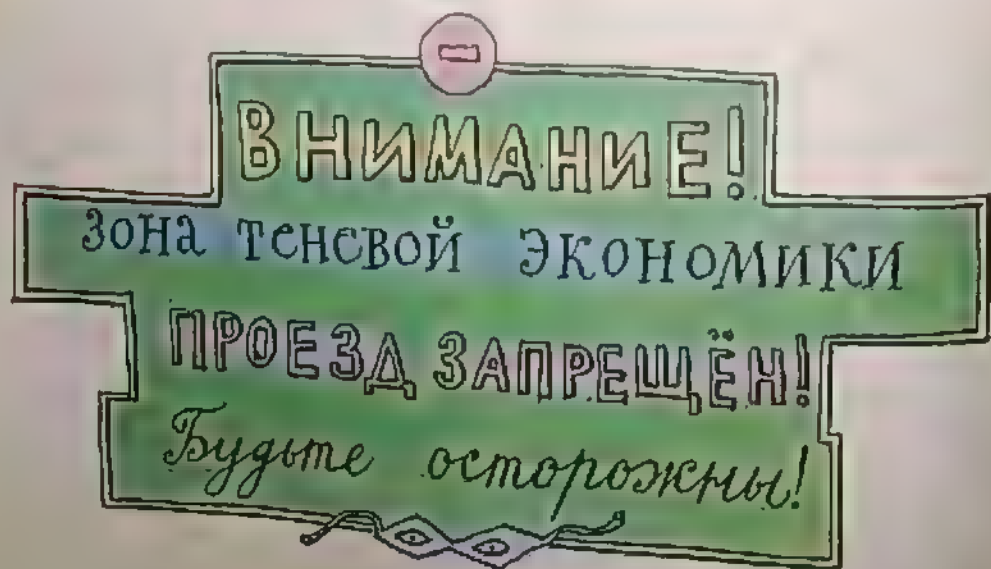 ВНИМАНИЕ!
зона теневой экономики
ПРОЕЗД ЗАПРЕЩЁН!
Будьте осторожны!